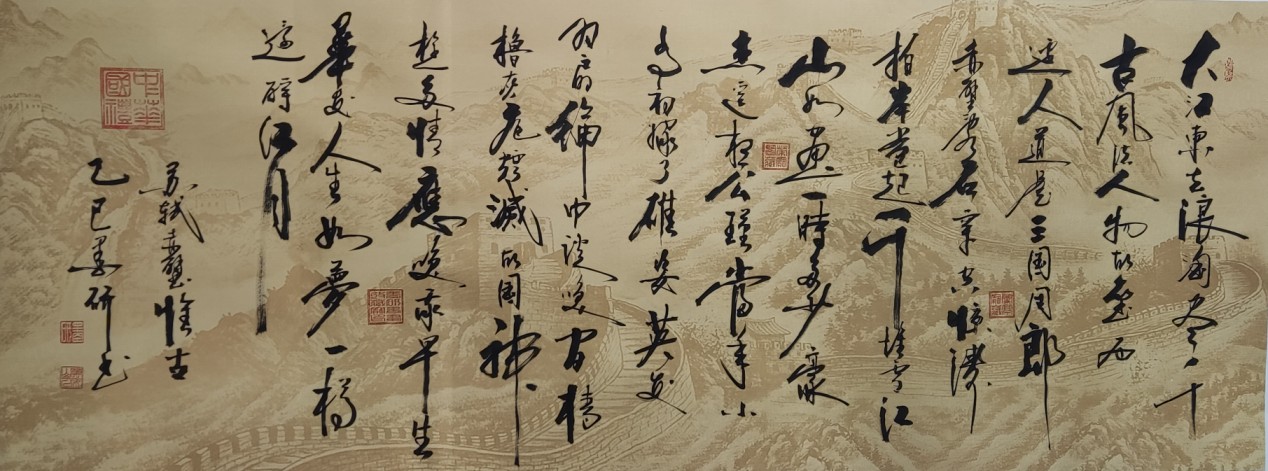 大江東去浪淘尽千
古風流人物故壘西
边人道是三國周郎
赤壁亂石穿空驚濤
拍岸卷起千堆雪江
山如畫一時多少豪
杰遥想公瑾當年小
喬初嫁了雄姿英发
羽扇綸巾談笑间檣
櫓灰飛煙滅故國神
遊多情應笑我早生
華发人生如夢一樽
還酹江月
苏軾赤壁懷古
乙巳墨研书
中華國禮